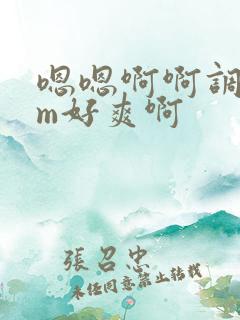 嗯嗯啊啊調
m好爽啊
張召忠
未经同意禁止转载